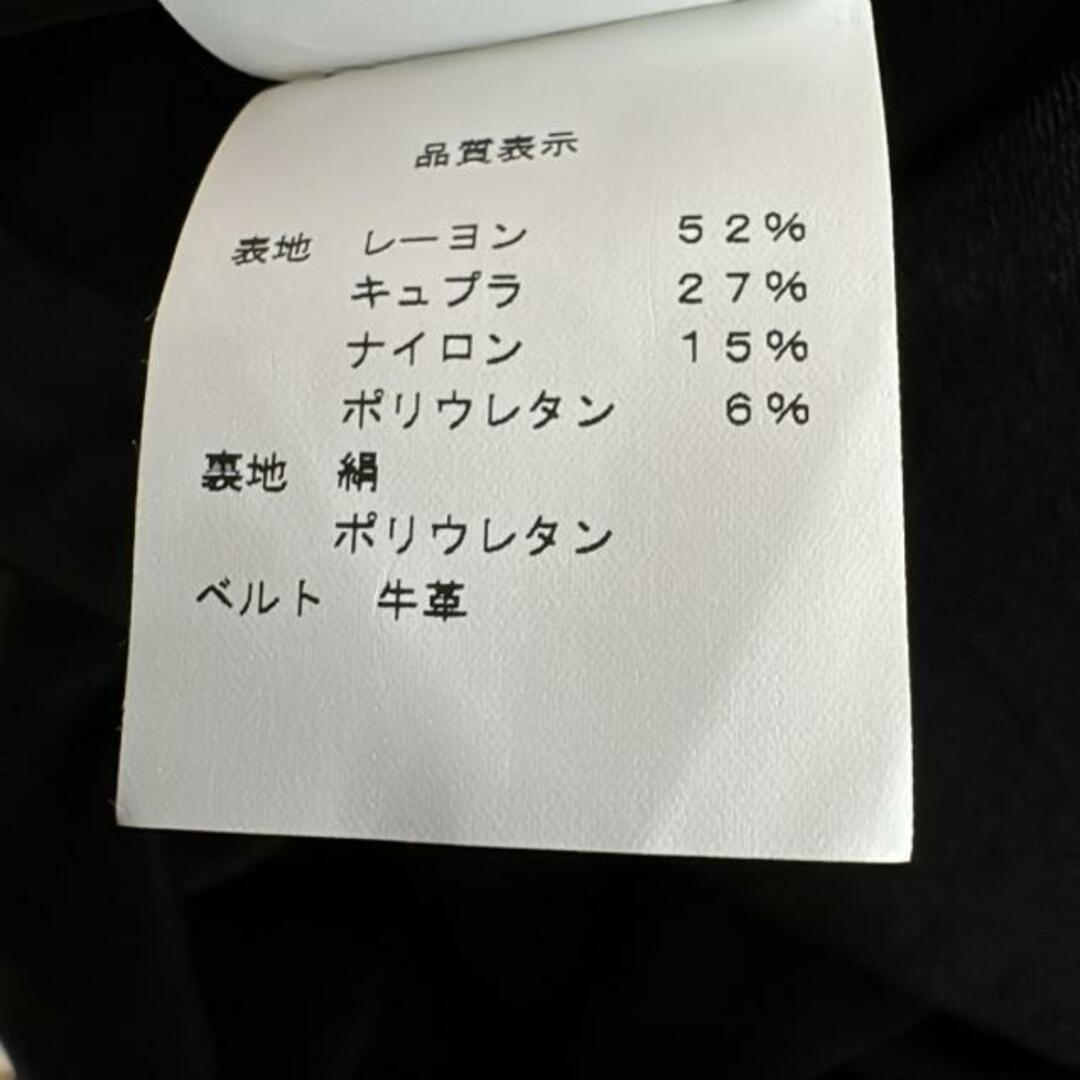 品質表示
表地 レーヨン 52%
キュプラ 27%
ナイロン 15%
ポリウレタン 6%
裏地 絹
ポリウレタン
ベルト 牛革